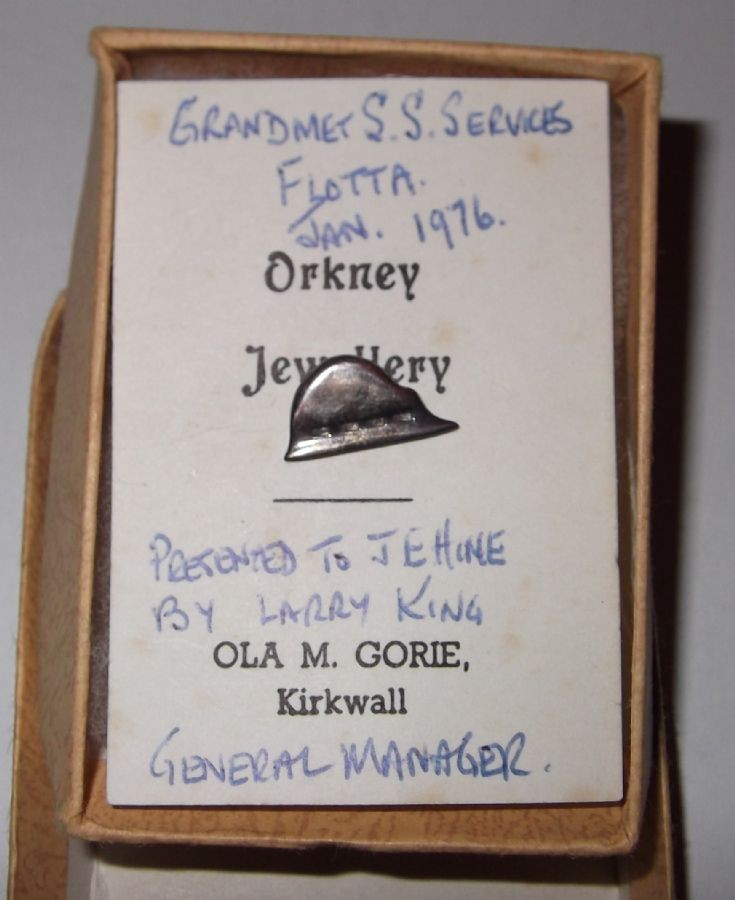 GRANDMET S.S. SERVICES
FLOTTA.
JAN. 1976.
Orkney
Jewellery
PRESENTED TO J E HINE
BY LARRY KING
OLA M. GORIE,
Kirkwall
GENERAL MANAGER.